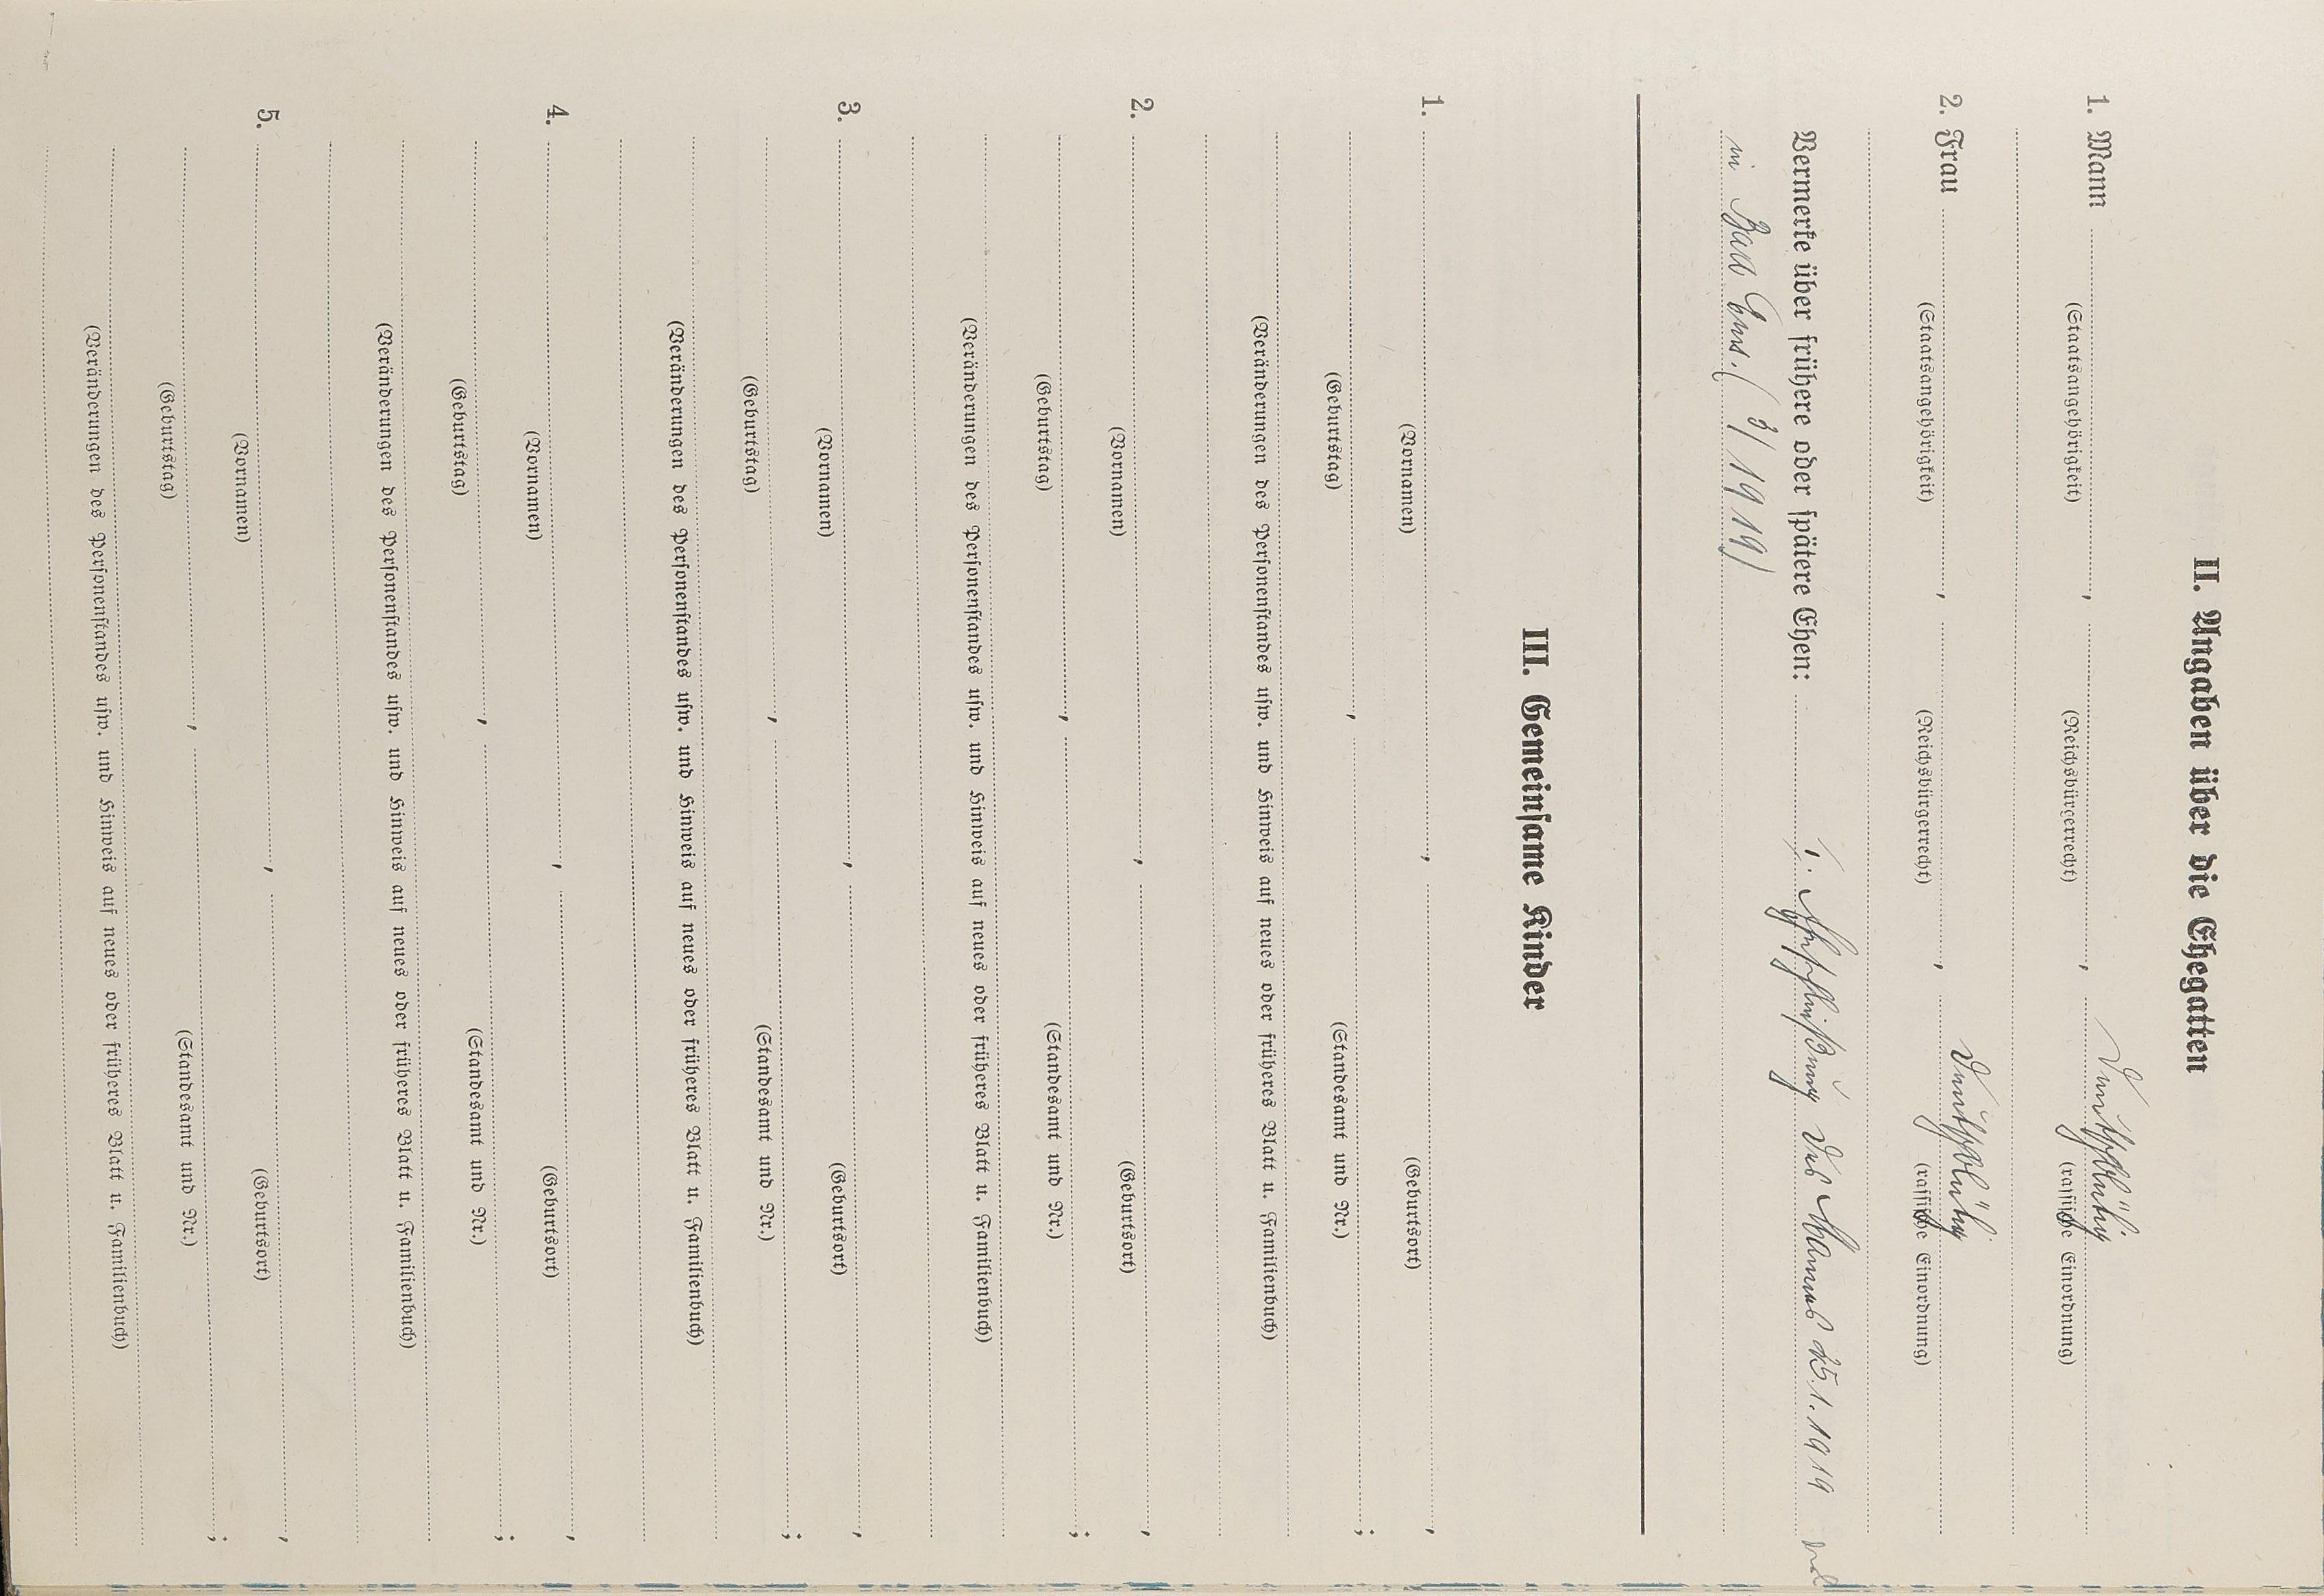 II. Angaben über die Ehegatten
1. Mann , , Deutschblütig
(Staatsangehörigkeit) (Reichsbürgerrecht) (rassische Einordnung)
2. Frau , , Deutschblütig
(Staatsangehörigkeit) (Reichsbürgerrecht) (rassische Einordnung)
Vermerke über frühere oder spätere Ehen: 1. Eheschließung des Mannes 25.1.1919
in Bad Ems. (3/1919)
III. Gemeinsame Kinder
1. , ,
(Vornamen) (Geburtsort)
, ;
(Geburtstag) (Standesamt und Nr.)
(Veränderungen des Personenstandes usw. und Hinweis auf neues oder früheres Blatt u. Familienbuch)
2. , ,
(Vornamen) (Geburtsort)
, ;
(Geburtstag) (Standesamt und Nr.)
(Veränderungen des Personenstandes usw. und Hinweis auf neues oder früheres Blatt u. Familienbuch)
3. , ,
(Vornamen) (Geburtsort)
, ;
(Geburtstag) (Standesamt und Nr.)
(Veränderungen des Personenstandes usw. und Hinweis auf neues oder früheres Blatt u. Familienbuch)
4. , ,
(Vornamen) (Geburtsort)
, ;
(Geburtstag) (Standesamt und Nr.)
(Veränderungen des Personenstandes usw. und Hinweis auf neues oder früheres Blatt u. Familienbuch)
5. , ,
(Vornamen) (Geburtsort)
, ;
(Geburtstag) (Standesamt und Nr.)
(Veränderungen des Personenstandes usw. und Hinweis auf neues oder früheres Blatt u. Familienbuch)